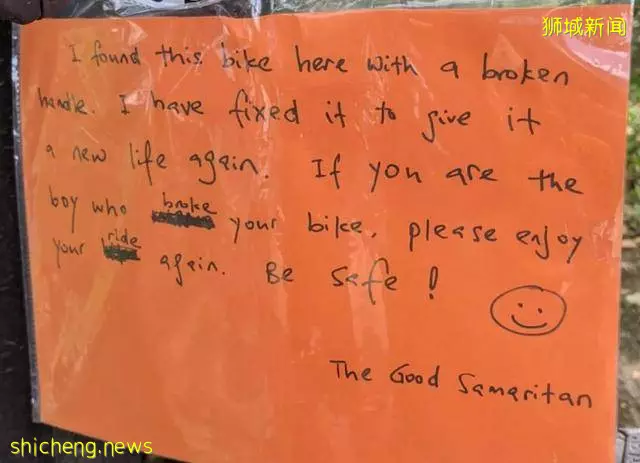 狮城新闻
I found this bike here with a broken
handle. I have fixed it to give it
a new life again. If you are the
boy who broke your bike, please enjoy
your ride again. Be safe!
The Good Samaritan
shicheng.news